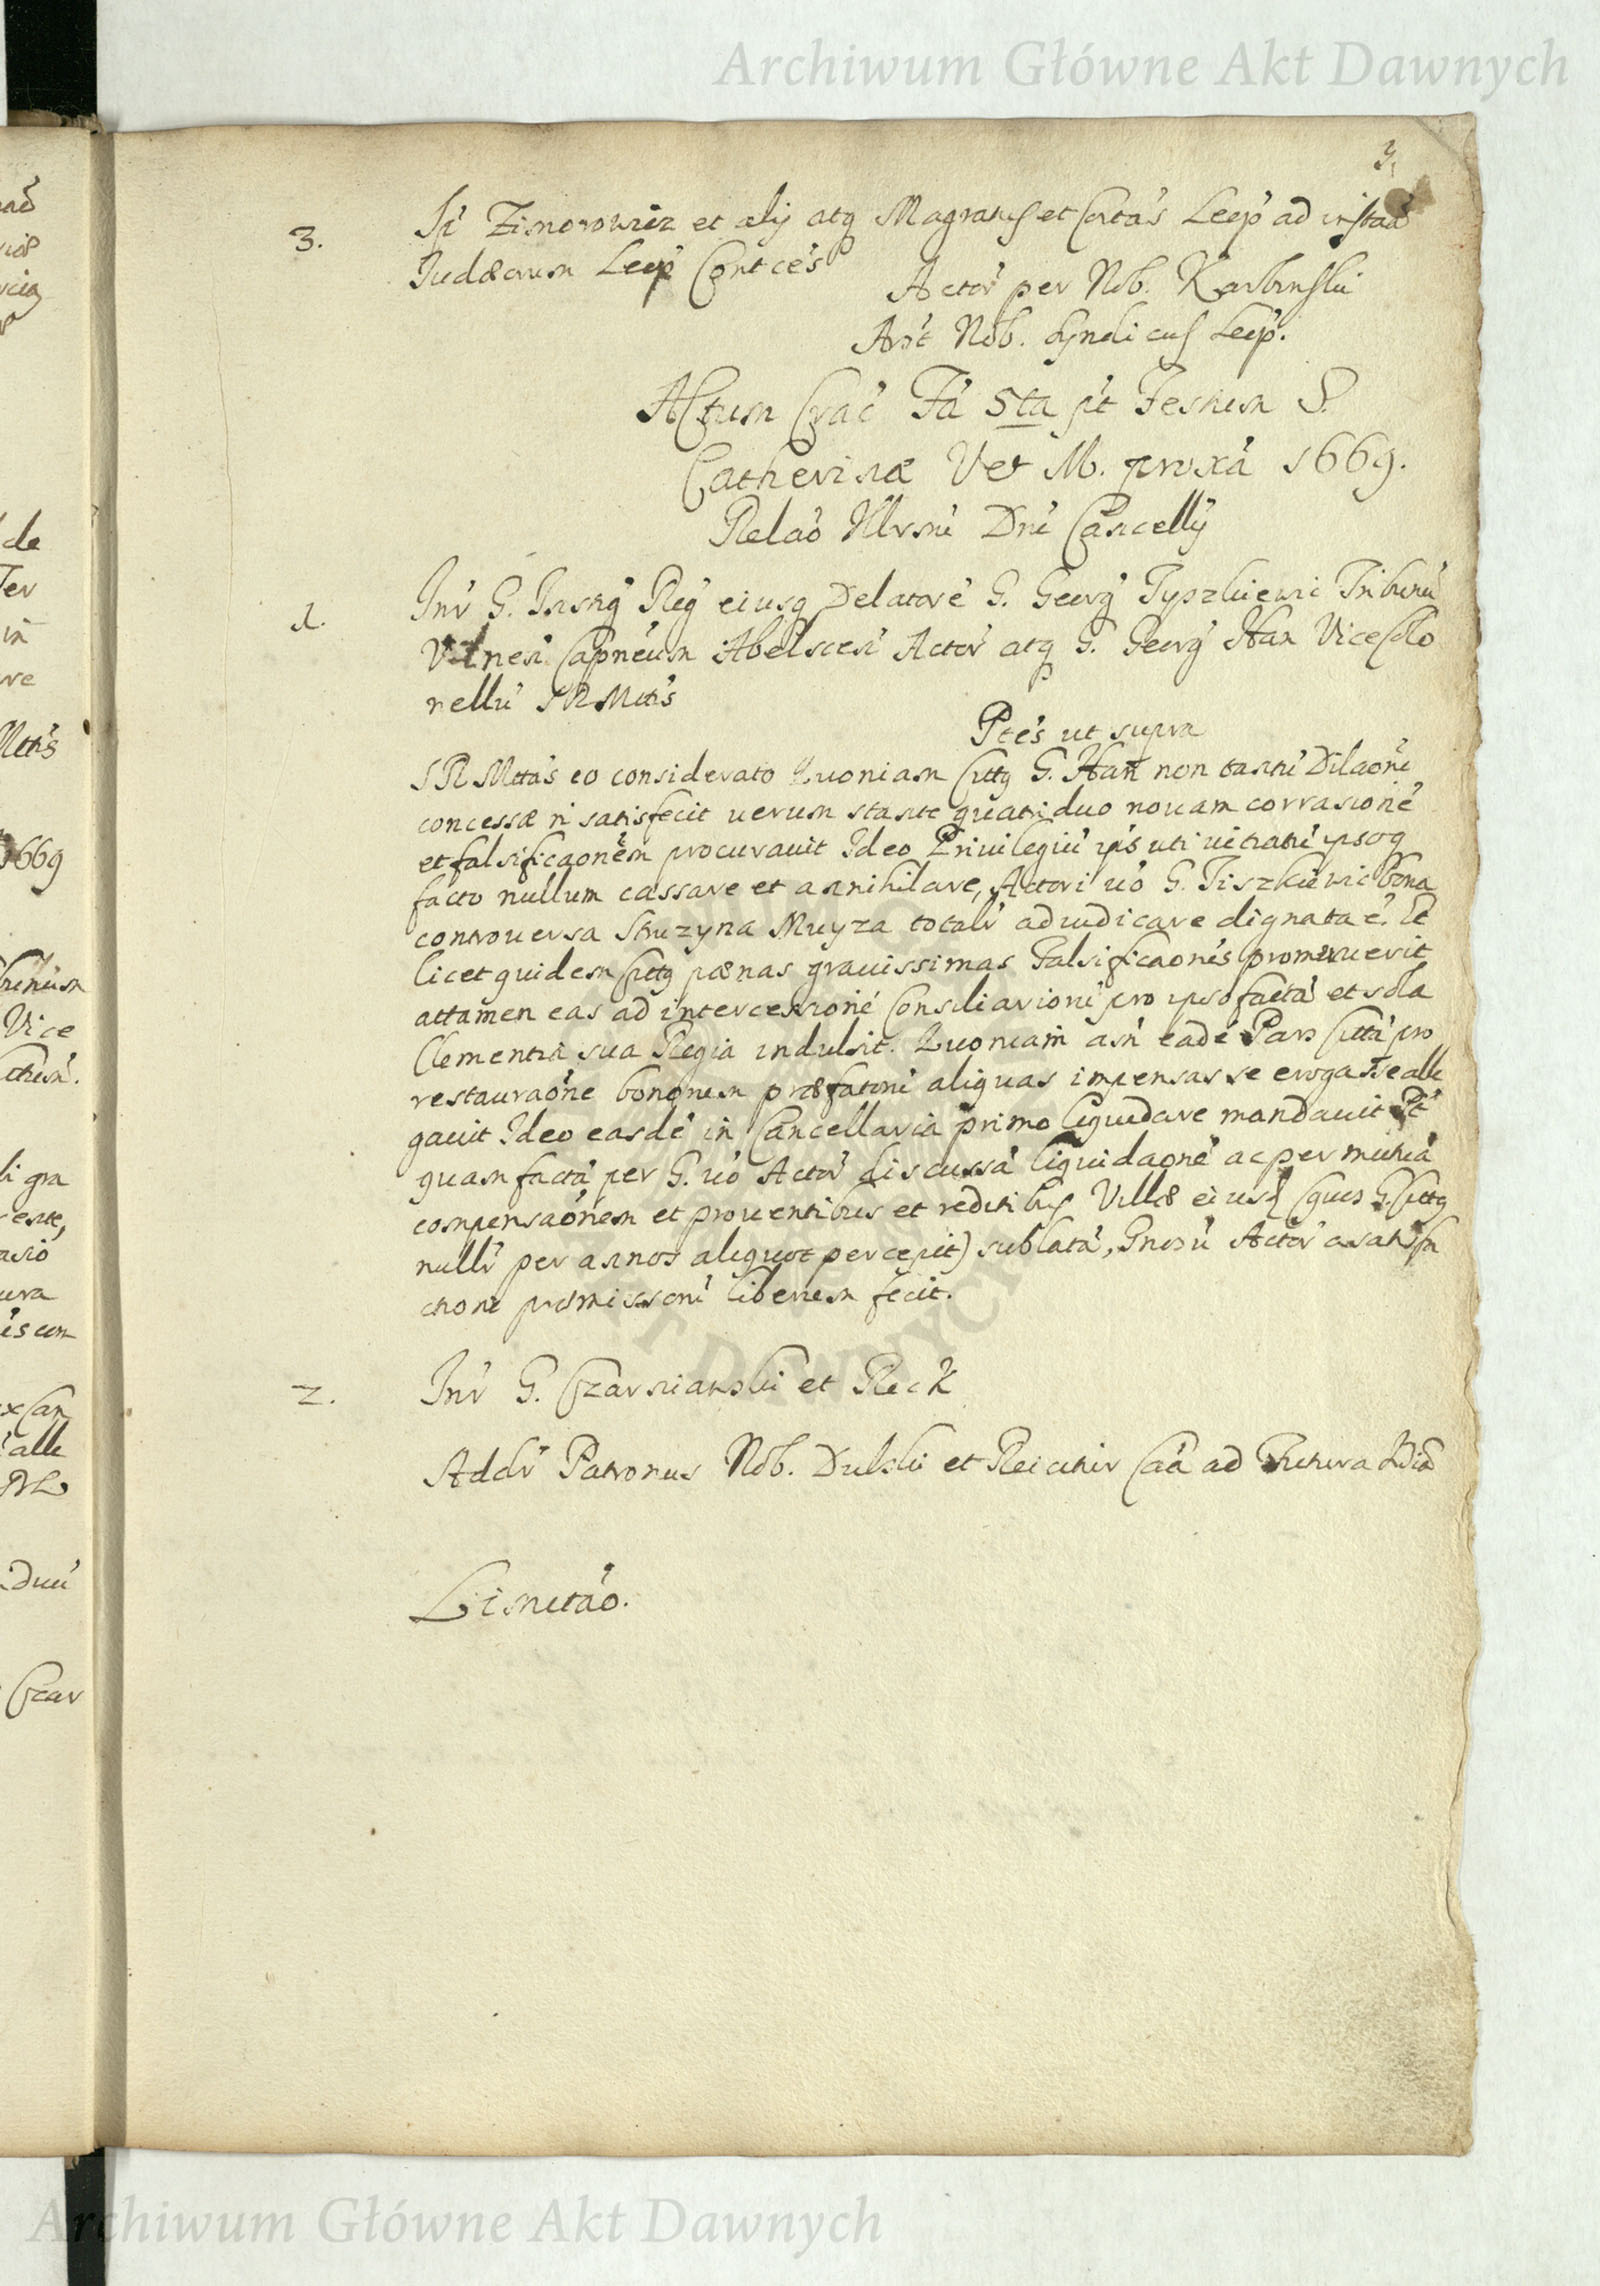 Archiwum Główne Akt Dawnych
3.
3. Sp Zimorowicz et alij atq Magratus et Cıvitas Leop ad instaã
Judæorum Leop Contces
Actor per Nob. Karbinski
Art Nob. Syndicus Leop.
Actum Crac Fa 5ta pt Festum S.
Catherinæ Ver M. proxa 1669.
Relao Illrsmi Dni Cancellij
1. Inr G. Instig Reg eiusq Delatore G. Georg Typzkiewic Tribunu
Vilnen Capneum Abelscen Actor atq G. Georg Han Vice Colo
nellu SRMttis
Ptes ut supra
SRMttas eo considerato Quoniam Cittg G. Han non tantu Dilaoni
concessæ n satisfecit uerum stante quatriduo nouam corrasione
et falsificaonem procurauit Ideo Priuilegiu ips uti uitiatu ipsoq
facto nullum cassare et annihilare, Actori uo G. Tiszkiewic bona
controuersa Struzyna Muyza totalr adiudicare dignata e. Et
licet quidem Cittg pænas grauissimas Falsificaonis promeruerit
attamen eas ad intercessione Consiliarioru pro ipso facta et sola
Clementia sua Regia indulsit. Quoniam asn eade Pars Citta pro
restauraone bonorum præfatoru aliquas impensas se erogasse alle
gauit Ideo easde in Cancellaria primo liquidare mandauit Pt
quam facta per G. uo Actor discussa liquidaone ac per mutua
compensaonem et prouentibus et reditibus Villæ eiusd (quos G. Cittg
nullr per annos aliquot percepit) sublata, Gnosu Actor a satisfa
ctione præmissoru liberum fecit.
2. Inr G. Czarniawski et Reck
Addr Patronus Nob. Dulski et Reicitur Caa ad Futura Judia
Limitao.
Archiwum Główne Akt Dawnych